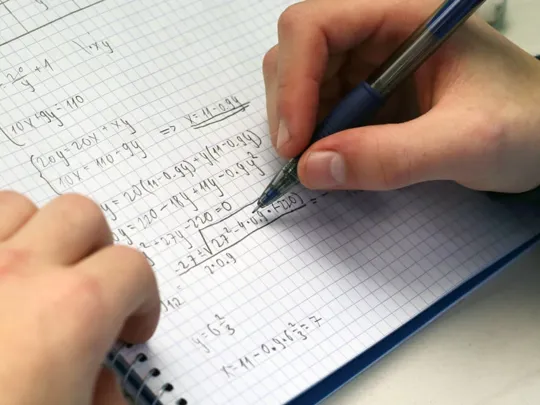 y
\·xy
= 20/y + 1
10x + 9y = 110
20y = 20x + xy
10x = 110 - 9y => x = 11 - 0.9y
y = 20(11 - 0.9y) + y(11 - 0.9y)
y = 220 - 18y + 11y - 0.9y²
y² + 27y - 220 = 0
-27 ± √27² - 4·0.9·(-220) =
2·0.9
y = 6 2/3
x = 11 - 0.9·6 2/3 = 7